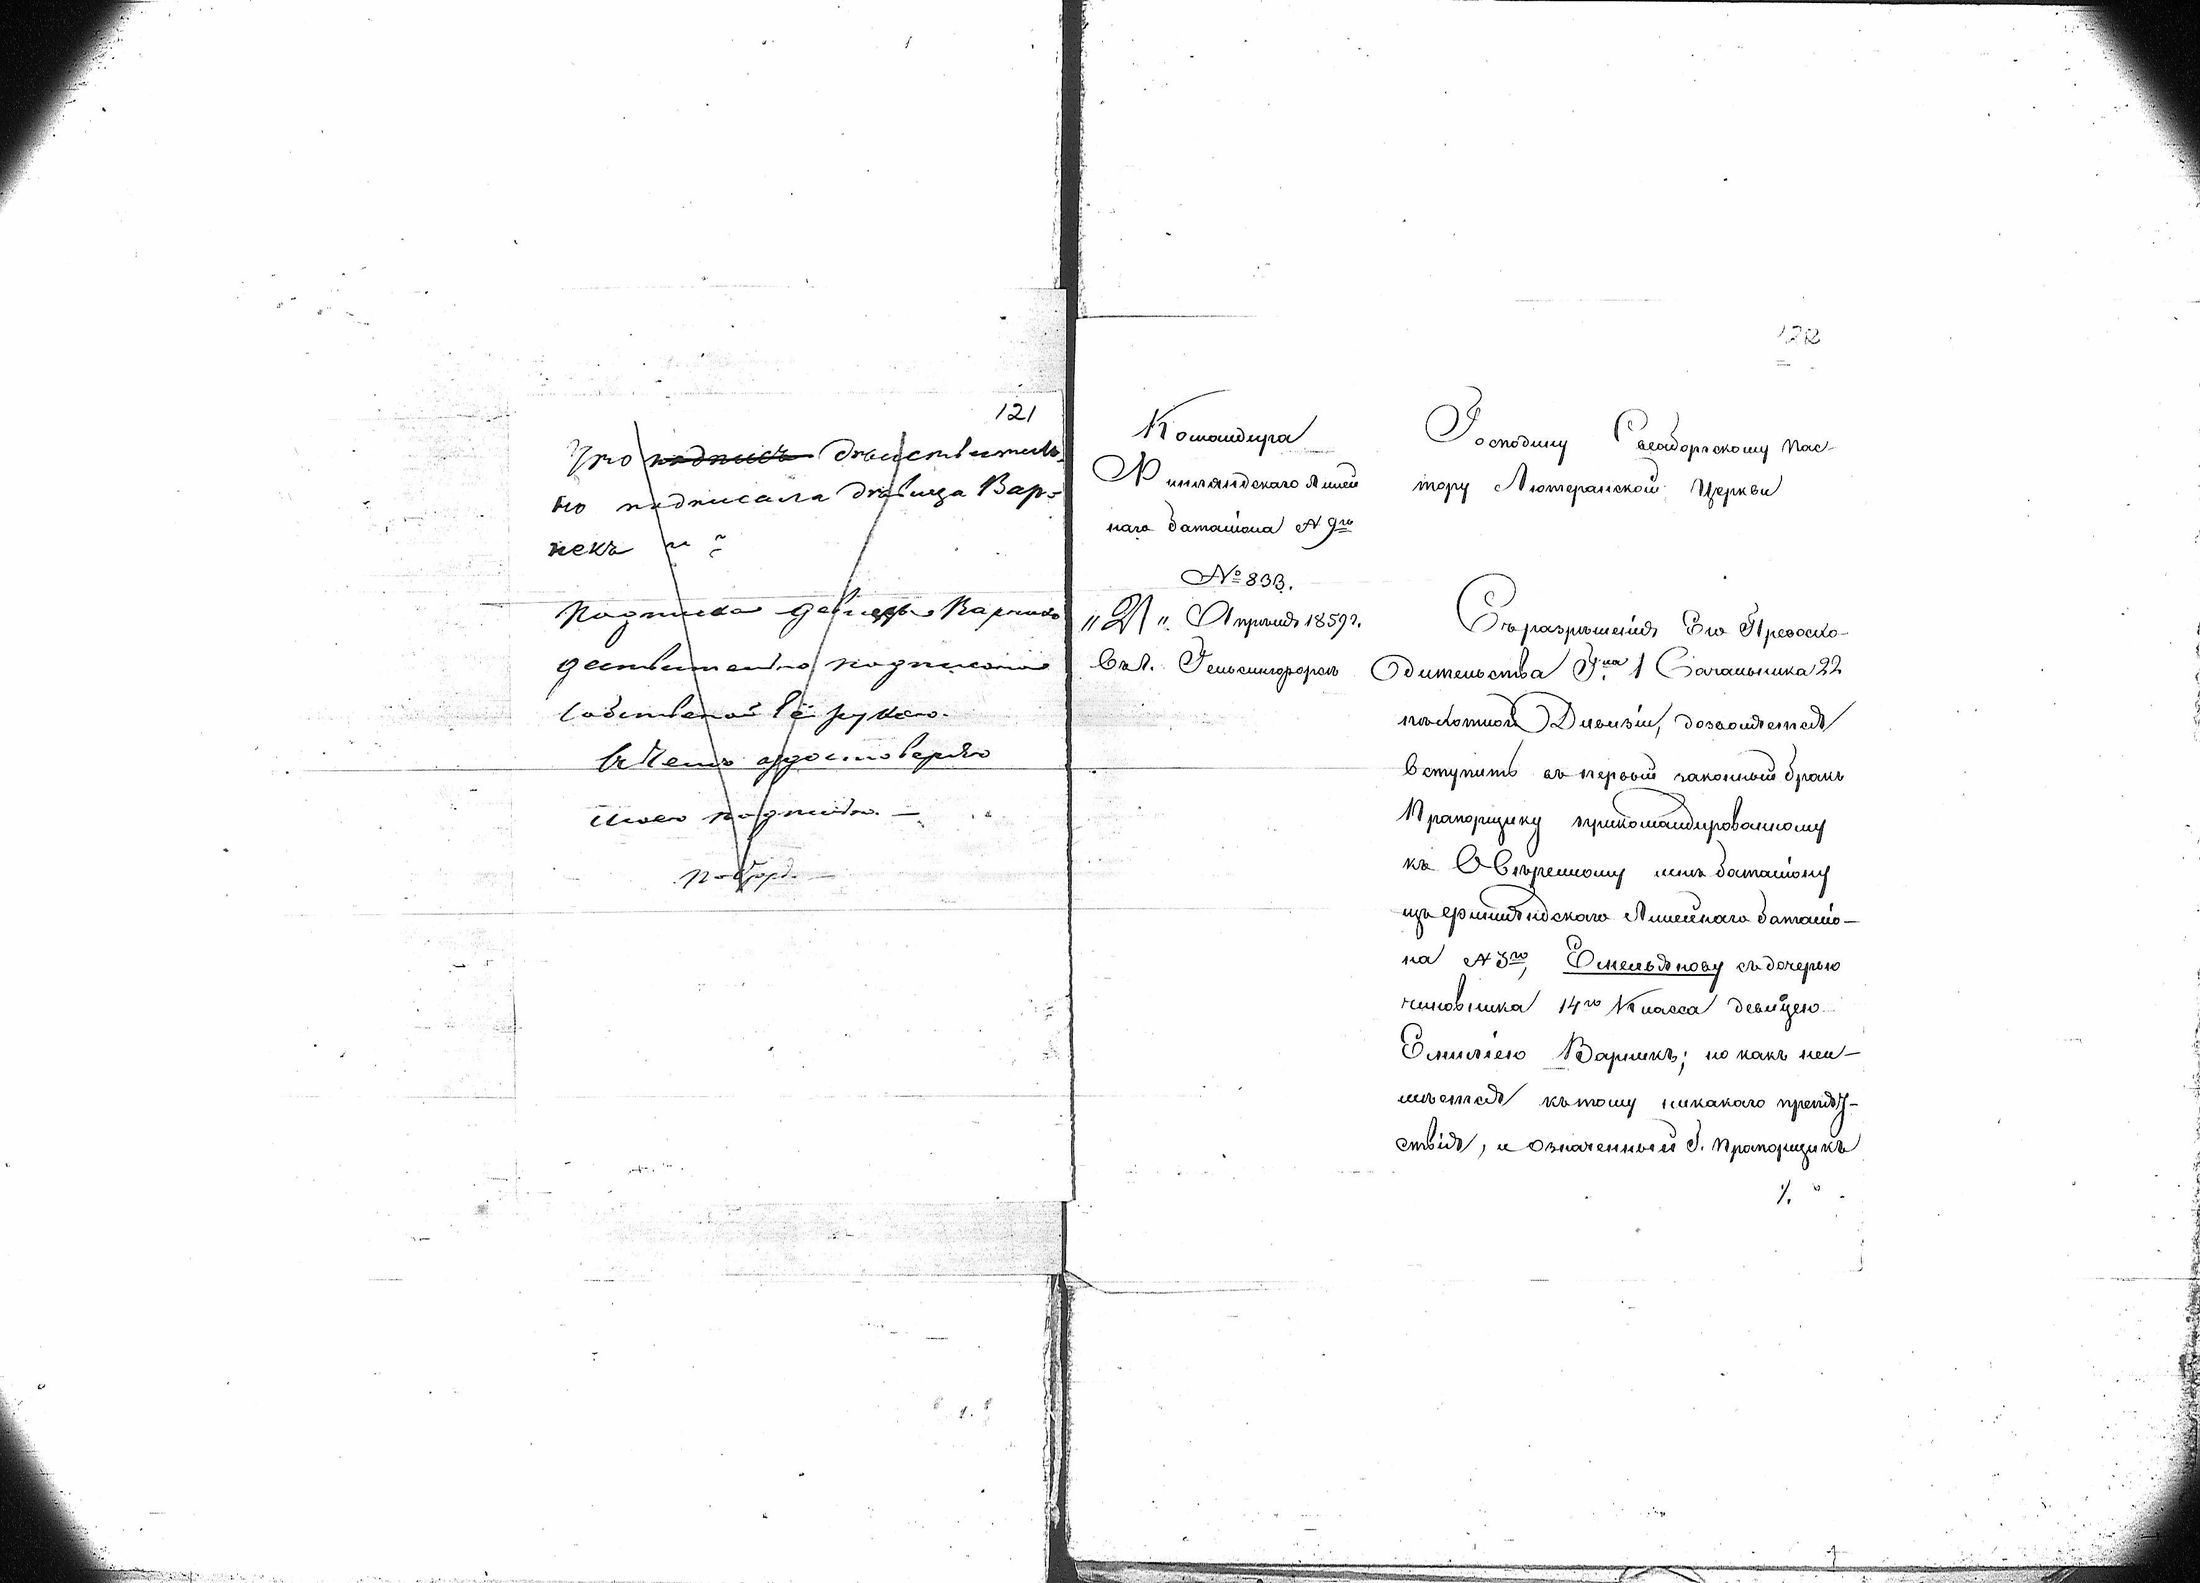 121
Что подпись дѣйствитель-
но подписала дѣвица Вар-
некъ
Подписка девицы Варнекъ
дествительно подписана
собственой её рукою.
въ чемъ удостоверяю
122
Командира
Финляндскаго Линей
наго баталiона № 9го
№ 833.
"21" Апрѣля 1859 г.
Гельсингфорсъ
Господину Свеаборгскому Пас-
тору Лютеранской Церкви
Съ разрѣшенiя Его Превосхо-
дительства Гна Начальника 22
пѣхотной Дивизiи, дозволяется
вступить въ первый законный бракъ
Прапорщику прикомандированному
къ Ввѣренному мнѣ баталiону
изъ Финляндскаго Линейнаго баталiо-
на № 3го, Емельянову съ дочерью
чиновника 14го Класса девицею
Емилiею Варнекъ; но какъ неи-
мѣется къ тому никакого препят-
ствiя, и означенный Г. Прапорщикъ
./.